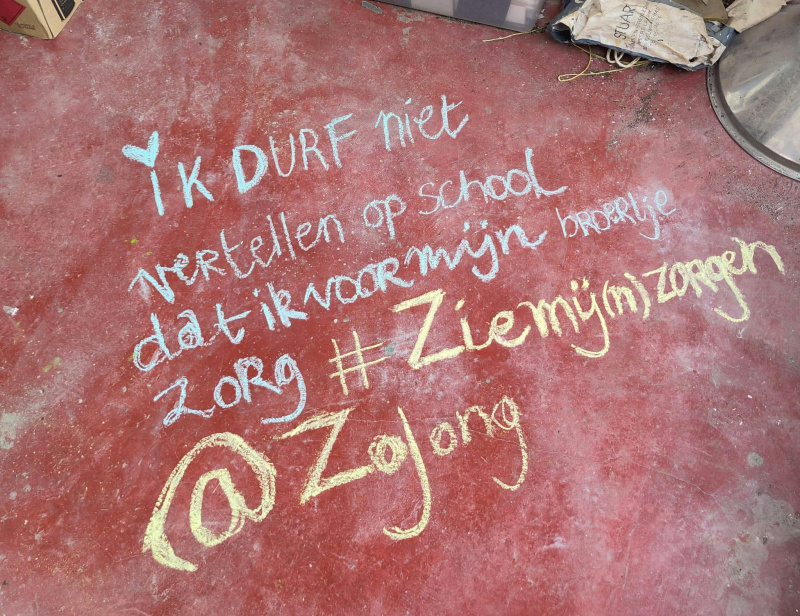 STUART
iK DURF niet
vertellen op school
dat ik voor mijn broertje
zorg #Ziemij(n)zorgen
@ZoJong